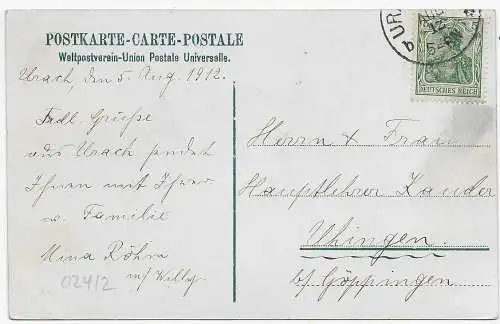 POSTKARTE-CARTE-POSTALE
Weltpostverein-Union Postale Universelle.
Urach, den 5. Aug. 1912.
Frdl. Grüße
aus Urach sendet
Ihnen mit Ihrer
w. Familie
Mina Röhm
m/ Willy
024/2
URA
DEUTSCHES REICH
Herrn & Frau
Hauptlehrer Zander
Uhingen
b/ Göppingen